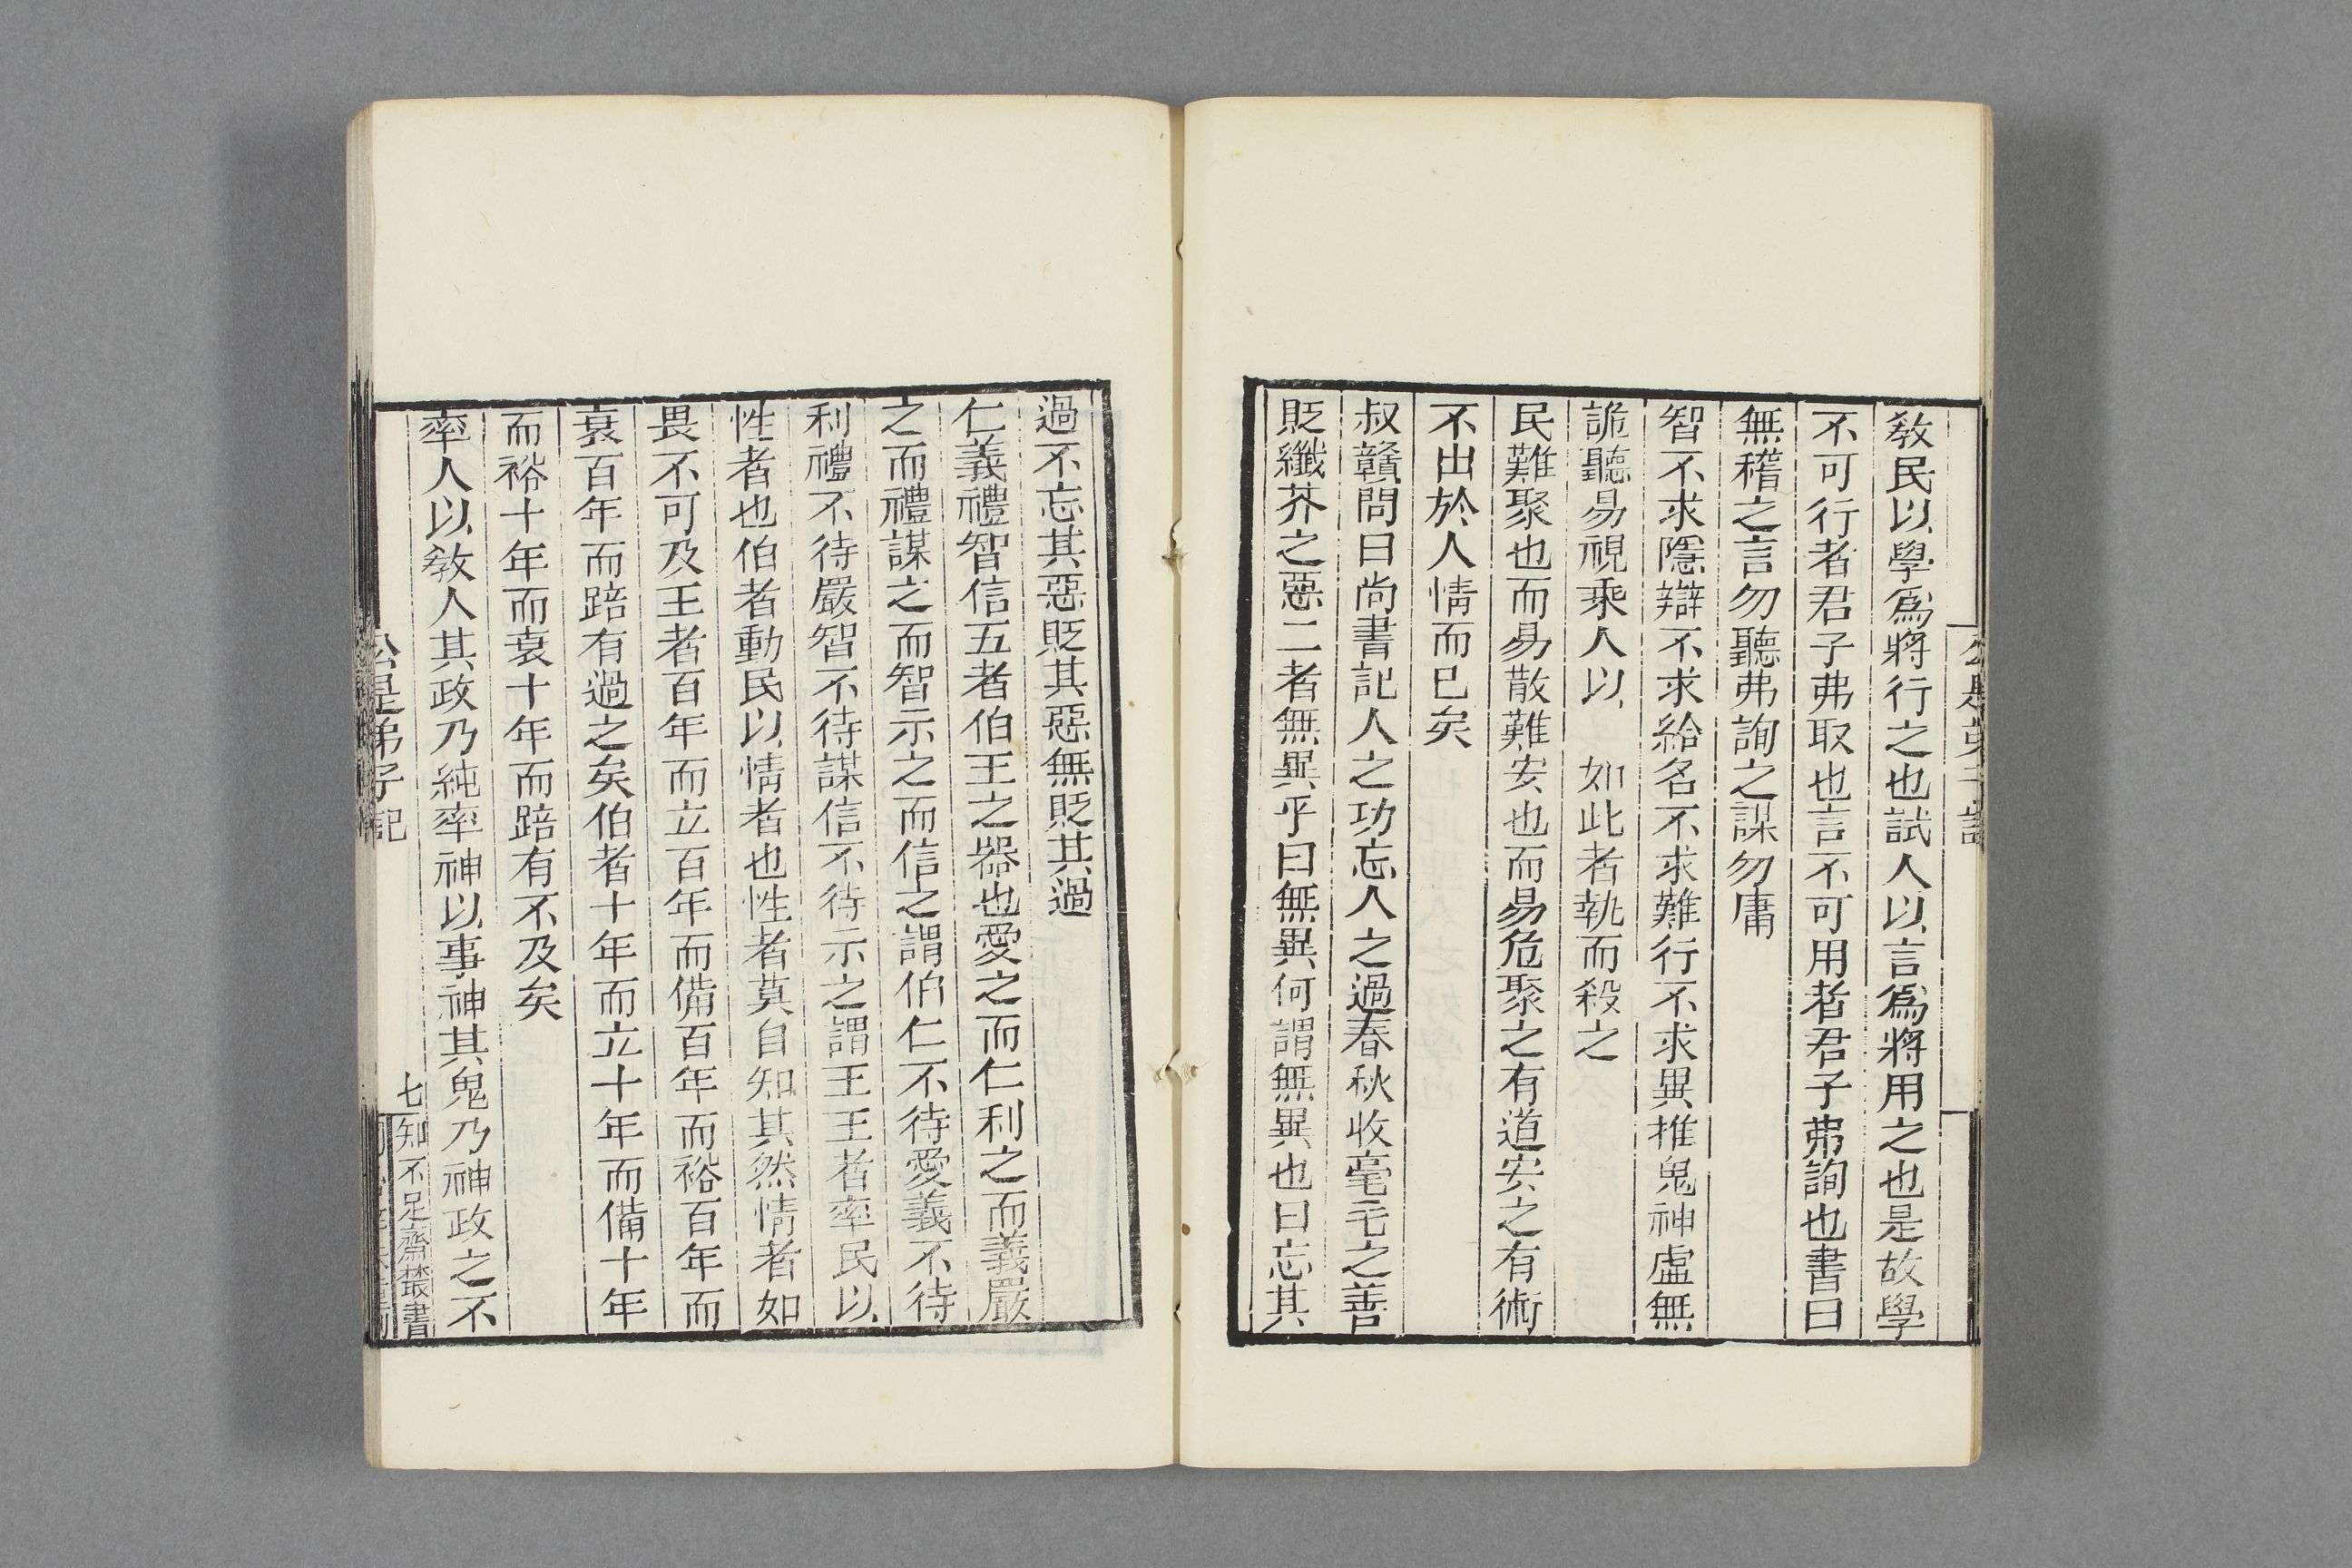 敎民以學爲將行之也試人以言爲將用之也是故學
不可行者君子弗取也言不可用者君子弗詢也書曰
無稽之言勿聽弗詢之謀勿庸
智不求隱辯不求給名不求難行不求異推鬼神虛無
詭聽易視乘人以　如此者執而殺之
民難聚也而易散難安也而易危聚之有道安之有術
不出於人情而已矣
叔贛問曰尚書記人之功忘人之過春秋收毫毛之善
貶纖芥之惡二者無異乎曰無異何謂無異也曰忘其
過不忘其惡貶其惡無貶其過
仁義禮智信五者伯王之器也愛之而仁利之而義嚴
之而禮謀之而智示之而信之謂伯仁不待愛義不待
利禮不待嚴智不待謀信不待示之謂王王者率民以
性者也伯者動民以情者也性者莫自知其然情者如
畏不可及王者百年而立百年而備百年而裕百年而
衰百年而踣有過之矣伯者十年而立十年而備十年
而裕十年而衰十年而踣有不及矣
率人以敎人其政乃純率神以事神其鬼乃神政之不
公是弟子記
七
知不足齋叢書